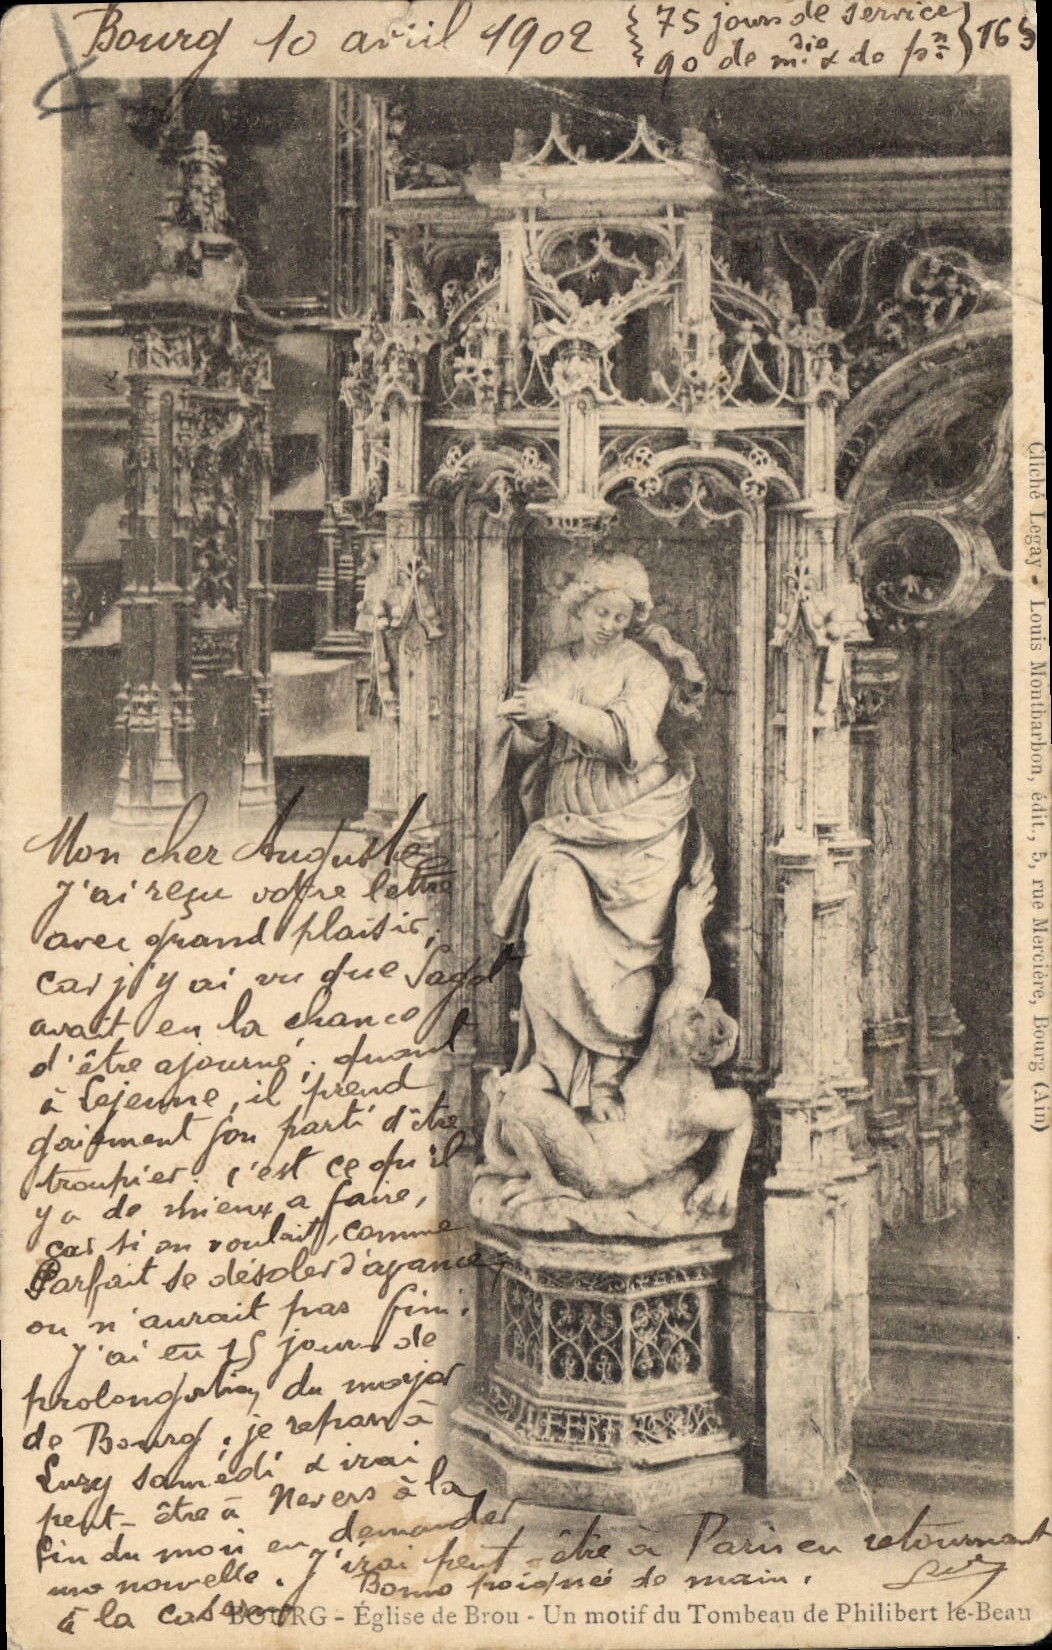 Bourg 10 avril 1902
75 jours de service
90 de m. dio & de pon
165
Mon cher Auguste
J'ai reçu votre lettre
avec grand plaisir,
car j'y ai vu que Sagot
avait eu la chance
d'être ajourné; quant
à Lejeune, il prend
gaiement son parti d'être
troupier. c'est ce qu'il
y a de mieux a faire,
car si on voulait, comme
Parfait se désoler d'avance,
on n'aurait pas fini.
J'ai eu 15 jours de
prolongation du major
de Bourg. je repars à
Luzy samedi & irai
peut-être à Nevers à la
fin du mois en demander
une nouvelle. J'irai peut-être à Paris en retournant
à la caserne
Bonne poignée de main.
FERT
BOURG - Église de Brou - Un motif du Tombeau de Philibert le-Beau
Cliché Legay - Louis Montbarbon, édit., 5, rue Mercière, Bourg (Ain)